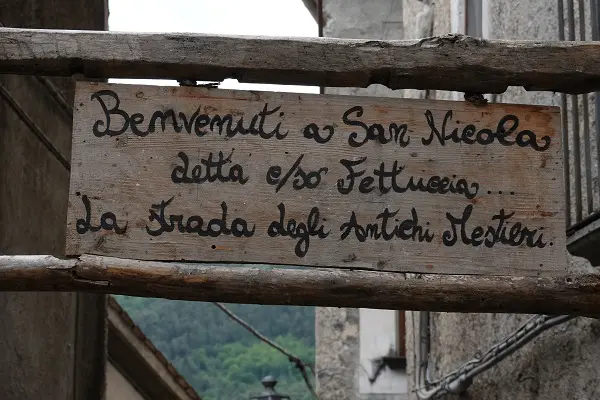 Benvenuti a San Nicola
detta c/so Fettuccia...
La Strada degli Antichi Mestieri.